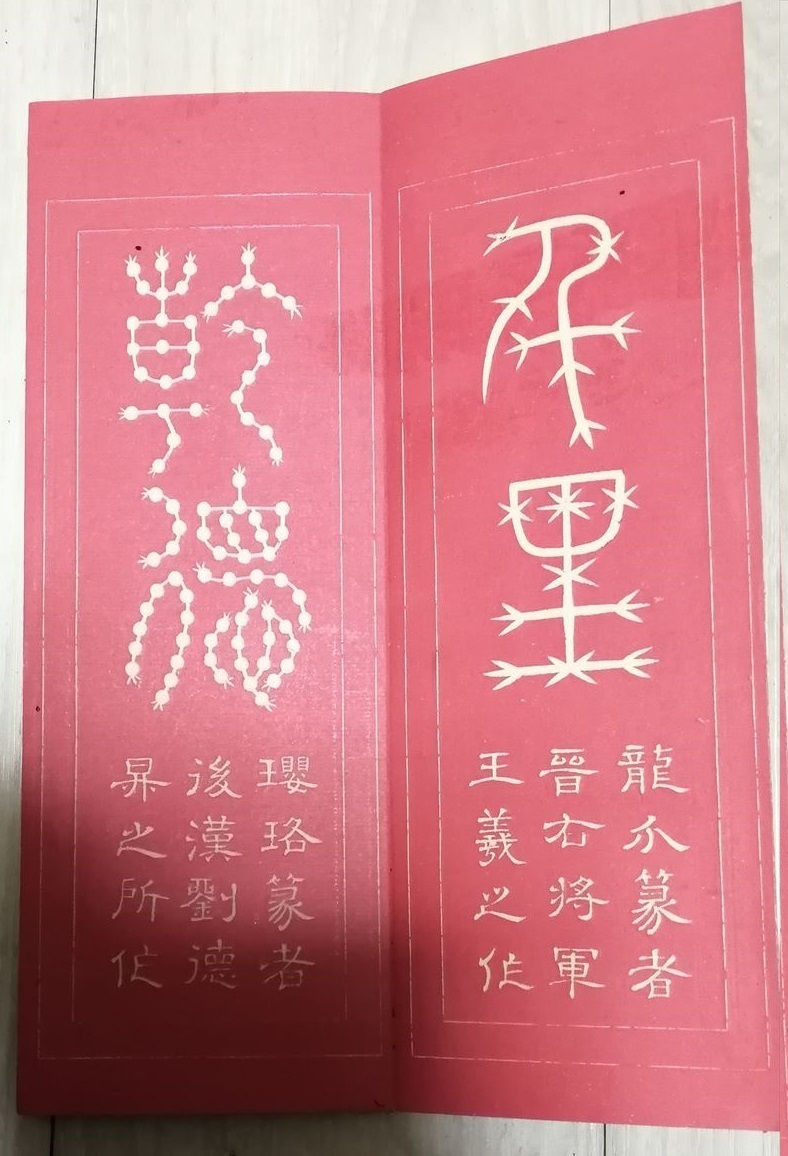 千里
龍爪篆者
晉右將軍
王羲之作
乾德
瓔珞篆者
後漢劉德
昇之所作